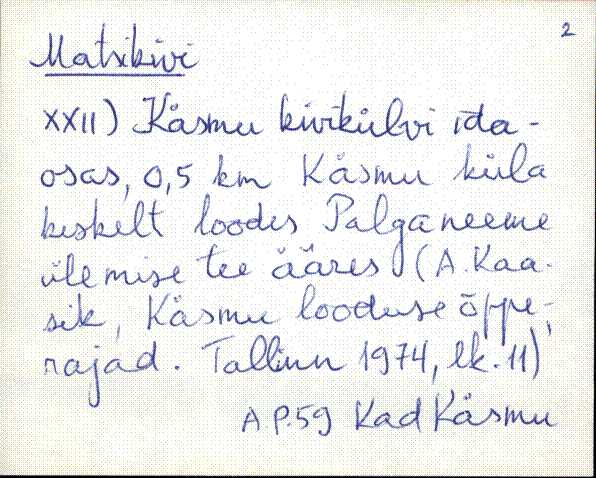 2
Matsikivi
XXII) Käsmu kivikülvi ida-
osas, 0,5 km Käsmu küla
keskelt loodes Palganeeme
ülemise tee ääres (A. Kaa-
sik, Käsmu looduse õppe-
rajad. Tallinn 1974, lk. 11)
A.P.59 Kad Käsmu